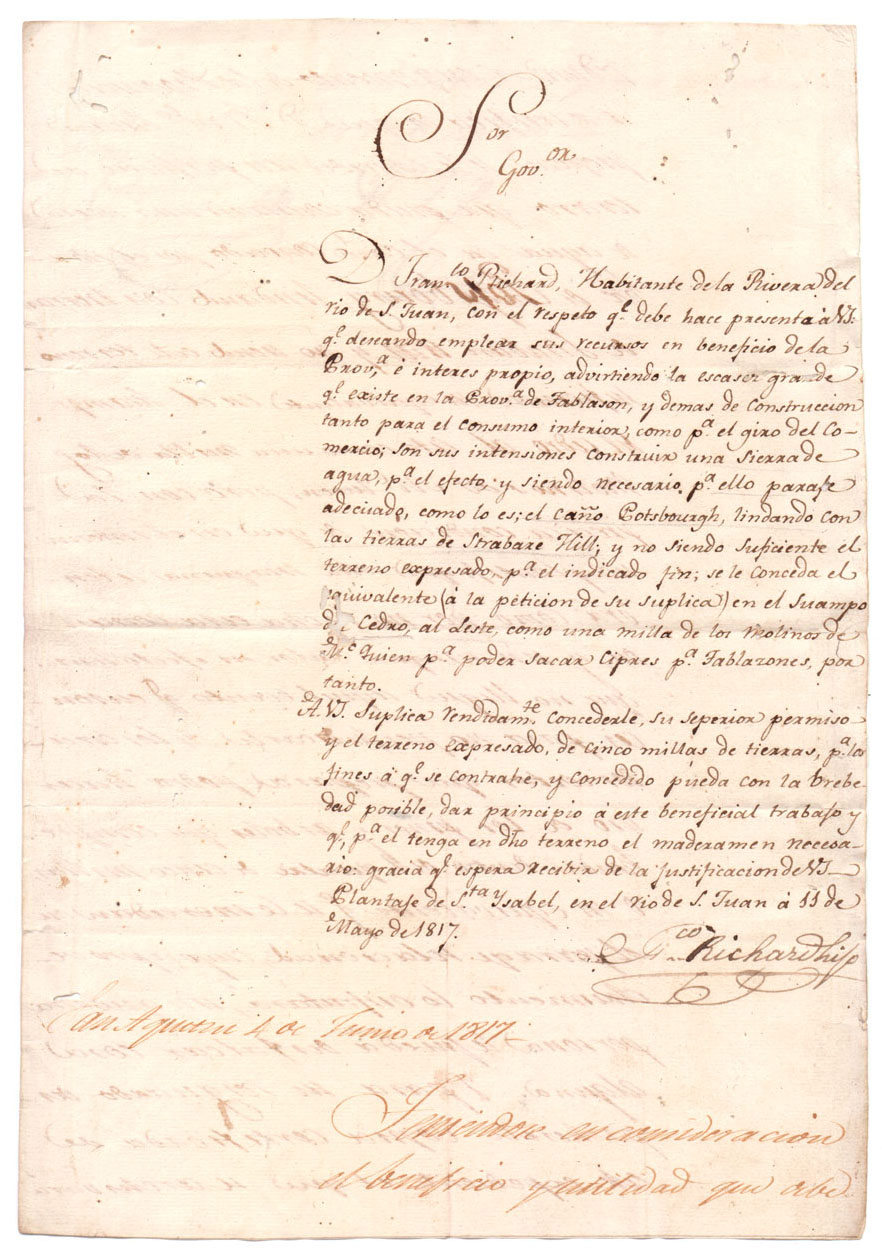 Sor
Gov.or
D Fran.co Richard, Habitante de la Rivera del
rio de S. Juan, con el respeto q.e debe hace presenta à VS:
q.e deseando emplear sus recursos en beneficio de la
Prov.a è interes propio, advirtiendo la escases grande
q.e existe en la Prov.a de Tablason, y demas de Construccion
tanto para el consumo interior, como p.a el giro del Co-
mercio; son sus intensiones construir una sierra de
agua, p.a el efecto, y siendo necesario p.a ello paraje
adecuado, como lo es; el caño Potsbourgh, lindando con
las tierras de Strabare Hill; y no siendo suficiente el
terreno expresado, p.a el indicado fin; se le conceda el
equivalente (à la peticion de su suplica) en el Suampo
de Cedro, al Leste, como una milla de los Molinos de
M.c Quien p.a poder sacar Cipres p.a Tablazones, por
tanto.
A. VS. Suplica rendidam.te concederle, su seperior permiso
y el terreno expresado, de cinco millas de tierras, p.a los
fines à q.e se contrahe, y concedido pueda con la brebe-
dad posible, dar principio à este beneficial trabajo y
q.e, p.a el tenga en dho terreno el maderamen necesa-
rio: gracia q.e espera recibir de la justificacion de VS
Plantaje de S.ta Ysabel, en el rio de S. Juan à 11 de
Mayo de 1817.
F.co Richard hijo
San Agustin 4 de Junio de 1817
Teniendose en consideracion
el beneficio y utilidad que debe